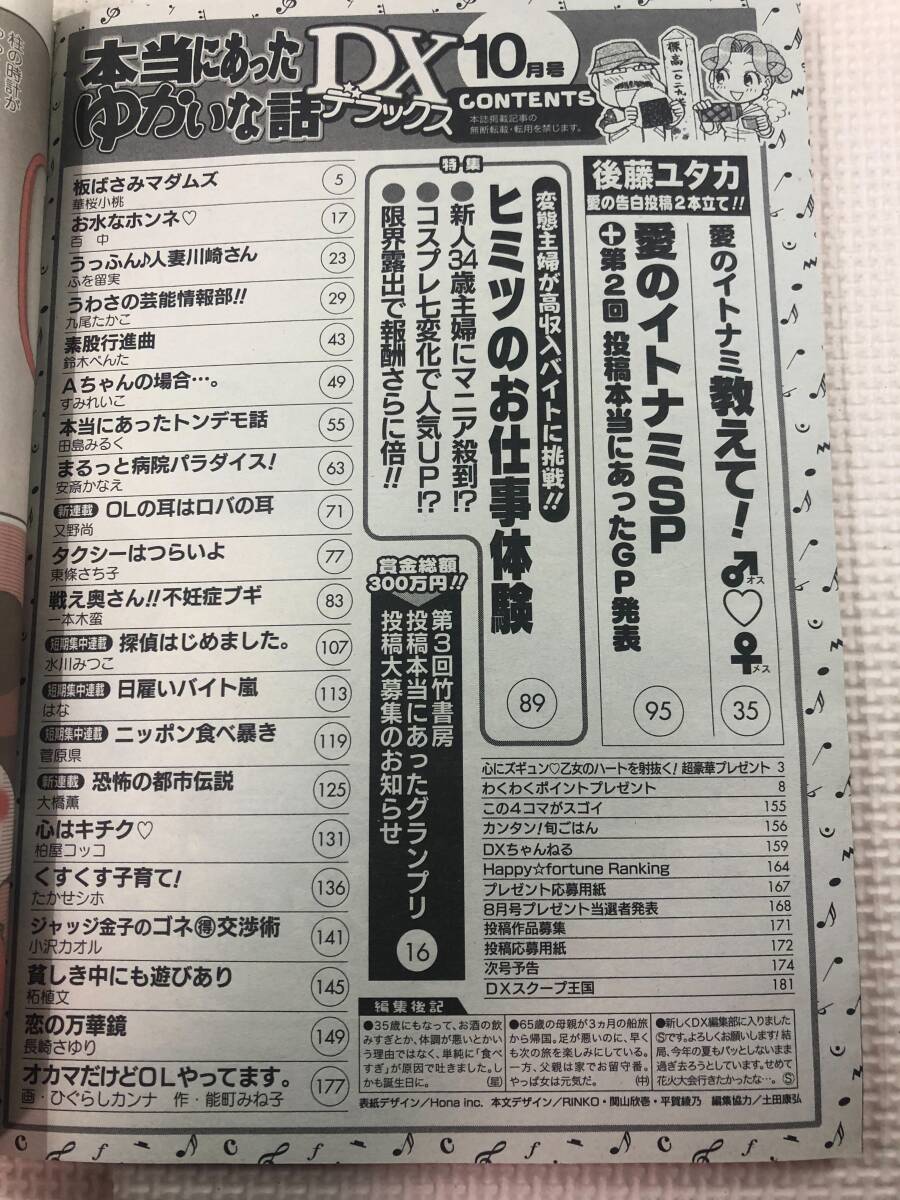 本当にあった
ゆかいな話
DX
デラックス
10月号
CONTENTS
本誌掲載記事の
無断転載・転用を禁じます。
板ばさみマダムズ 5
華桜小桃
お水なホンネ♡ 17
百 中
うっふん♪人妻川崎さん 23
ふを留実
うわさの芸能情報部!! 29
九尾たかこ
素股行進曲 43
鈴木ぺんた
Aちゃんの場合…。 49
すみれいこ
本当にあったトンデモ話 55
田島みるく
まるっと病院パラダイス! 63
安斎かなえ
新連載 OLの耳はロバの耳 71
又野尚
タクシーはつらいよ 77
東條さち子
戦え奥さん!!不妊症ブギ 83
一本木蛮
短期集中連載 探偵はじめました。 107
水川みつこ
短期集中連載 日雇いバイト嵐 113
はな
短期集中連載 ニッポン食べ暴き 119
菅原県
新連載 恐怖の都市伝説 125
大橋薫
心はキチク♡ 131
柏屋コッコ
くすくす子育て! 136
たかせシホ
ジャッジ金子のゴネ得交渉術 141
小沢カオル
貧しき中にも遊びあり 145
柘植文
恋の万華鏡 149
長崎さゆり
オカマだけどOLやってます。 177
画・ひぐらしカンナ 作・能町みね子
後藤ユタカ
愛の告白投稿2本立て!!
愛のイトナミ教えて!♂♡♀
オス
メス
35
愛のイトナミSP
+第2回 投稿本当にあったGP発表
95
特集
変態主婦が高収入バイトに挑戦!!
ヒミツのお仕事体験
●新人34歳主婦にマニア殺到!?
●コスプレ七変化で人気UP!?
●限界露出で報酬さらに倍!!
89
賞金総額
300万円!!
第3回竹書房
投稿本当にあったグランプリ
投稿大募集のお知らせ
16
心にズギュン♡乙女のハートを射抜く! 超豪華プレゼント 3
わくわくポイントプレゼント 8
この4コマがスゴイ 155
カンタン!旬ごはん 156
DXちゃんねる 159
Happy☆fortune Ranking 164
プレゼント応募用紙 167
8月号プレゼント当選者発表 168
投稿作品募集 171
投稿応募用紙 172
次号予告 174
DXスクープ王国 181
編集後記
●35歳にもなって、お酒の飲
みすぎとか、体調が悪いとかい
う理由ではなく、単純に「食べ
すぎ」が原因で吐きました。し
かも誕生日に。 (星)
●65歳の母親が3ヵ月の船旅
から帰国。足が悪いのに、早く
も次の旅を楽しみにしている。
一方、父親は家でお留守番。
やっぱ女は元気だ。 (中)
●新しくDX編集部に入りました
Ⓢです。よろしくお願いします! 結
局、今年の夏もパッとしないまま
過ぎ去ろうとしています。せめて
花火大会行きたかったな…。 Ⓢ
表紙デザイン/Hona inc. 本文デザイン/RINKO・関山欣壱・平賀綾乃 編集協力/土田康弘